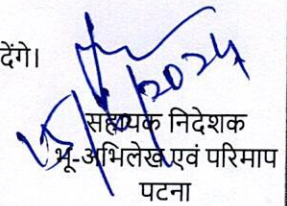 देंगे।
सहायक निदेशक
भू-अभिलेख एवं परिमाप
पटना